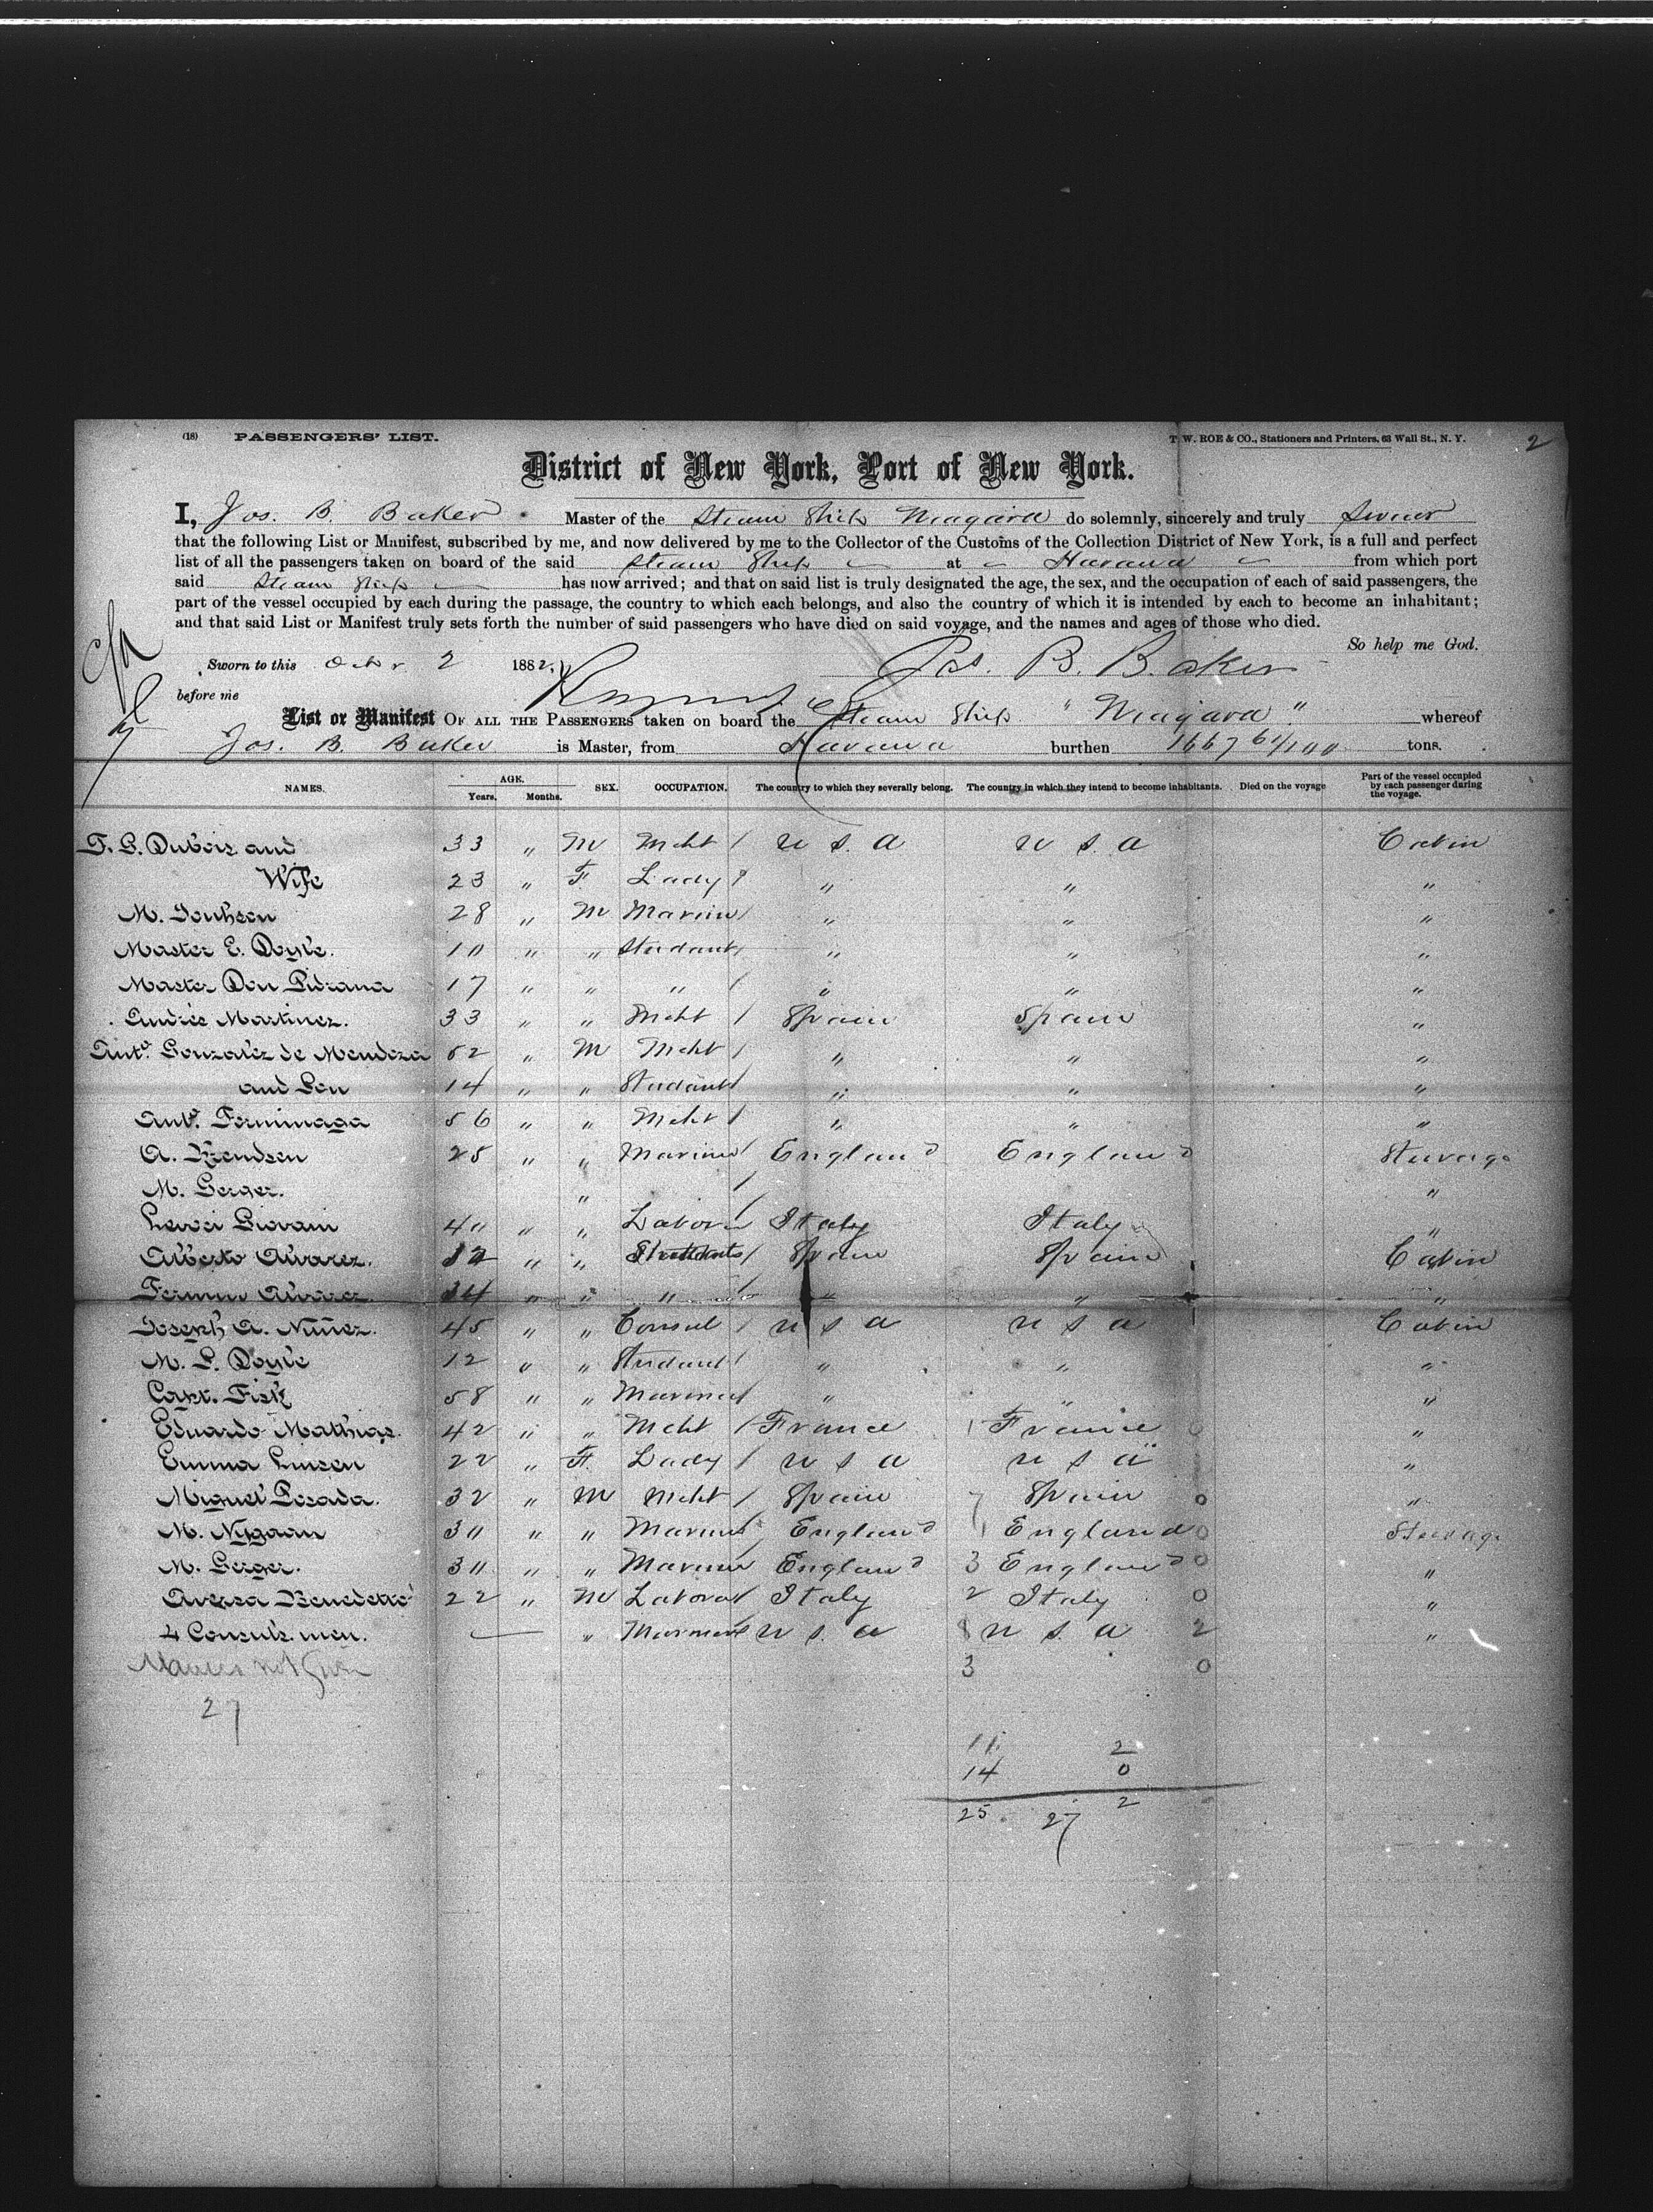 (18) PASSENGERS' LIST. T. W. ROE & CO., Stationers and Printers, 63 Wall St., N. Y. 2
District of New York, Port of New York.
I, Jos. B. Baker Master of the Steam Ship Niagara do solemnly, sincerely and truly swear
that the following List or Manifest, subscribed by me, and now delivered by me to the Collector of the Customs of the Collection District of New York, is a full and perfect
list of all the passengers taken on board of the said Steam Ship at Havana from which port
said Steam Ship has now arrived; and that on said list is truly designated the age, the sex, and the occupation of each of said passengers, the
part of the vessel occupied by each during the passage, the country to which each belongs, and also the country of which it is intended by each to become an inhabitant;
and that said List or Manifest truly sets forth the number of said passengers who have died on said voyage, and the names and ages of those who died.
So help me God.
Sworn to this Octbr 2 1882, Jos. B. Baker
before me
List or Manifest OF ALL THE PASSENGERS taken on board the Steam Ship "Niagara" whereof
Jos. B. Baker is Master, from Havana burthen 1667 61/100 tons.
NAMES. AGE. Years. Months. SEX. OCCUPATION. The country to which they severally belong. The country in which they intend to become inhabitants. Died on the voyage Part of the vessel occupied by each passenger during the voyage.
F. G. Dubois and 33 " M Mcht / U S. A U S. A Cabin
Wife 23 " F. Lady / " " "
M. 28 " M Marine / " " "
Master E. Doyle. 10 " " Student / " " "
Master Don 17 " " " / " " "
Andres Martinez. 33 " " Mcht / Spain Spain "
Anto. Gonzalez de Mendoza 52 " M Mcht / " " "
and Son 14 " " Student / " " "
Anto. 56 " " Mcht / " " "
A. 25 " " Marine / England England Steerage
M. Gerger. " / "
Giovani 40 " " Labor / Italy Italy "
Alberto Alvarez. 12 " " Students / Spain Spain Cabin
Fermin Alvarez. 14 " " " / " " "
Joseph A. Nuñez. 45 " " Consul / U S A U S A Cabin
M. L. Doyle 12 " " Student / " " "
Capt. Fisk 58 " " Mariner / " " "
Eduardo Mathias. 42 " " Mcht / France 1 France 0 "
Emma Linsen 22 " F. Lady / U S A U S A "
Miguel Posada. 32 " M Mcht / Spain 7 Spain 0 "
M. Nygaan 30 " " Marine / England 1 England 0 Steerage
M. Gerger. 30 " " Mariner England 3 England 0 "
Aversa Benedetto 22 " M Labor / Italy 2 Italy 0 "
4 Consuls. men. " Mariner U S. A 8 U S. A 2 "
Names not given 3 0
27
11 2
14 0
25 2
27